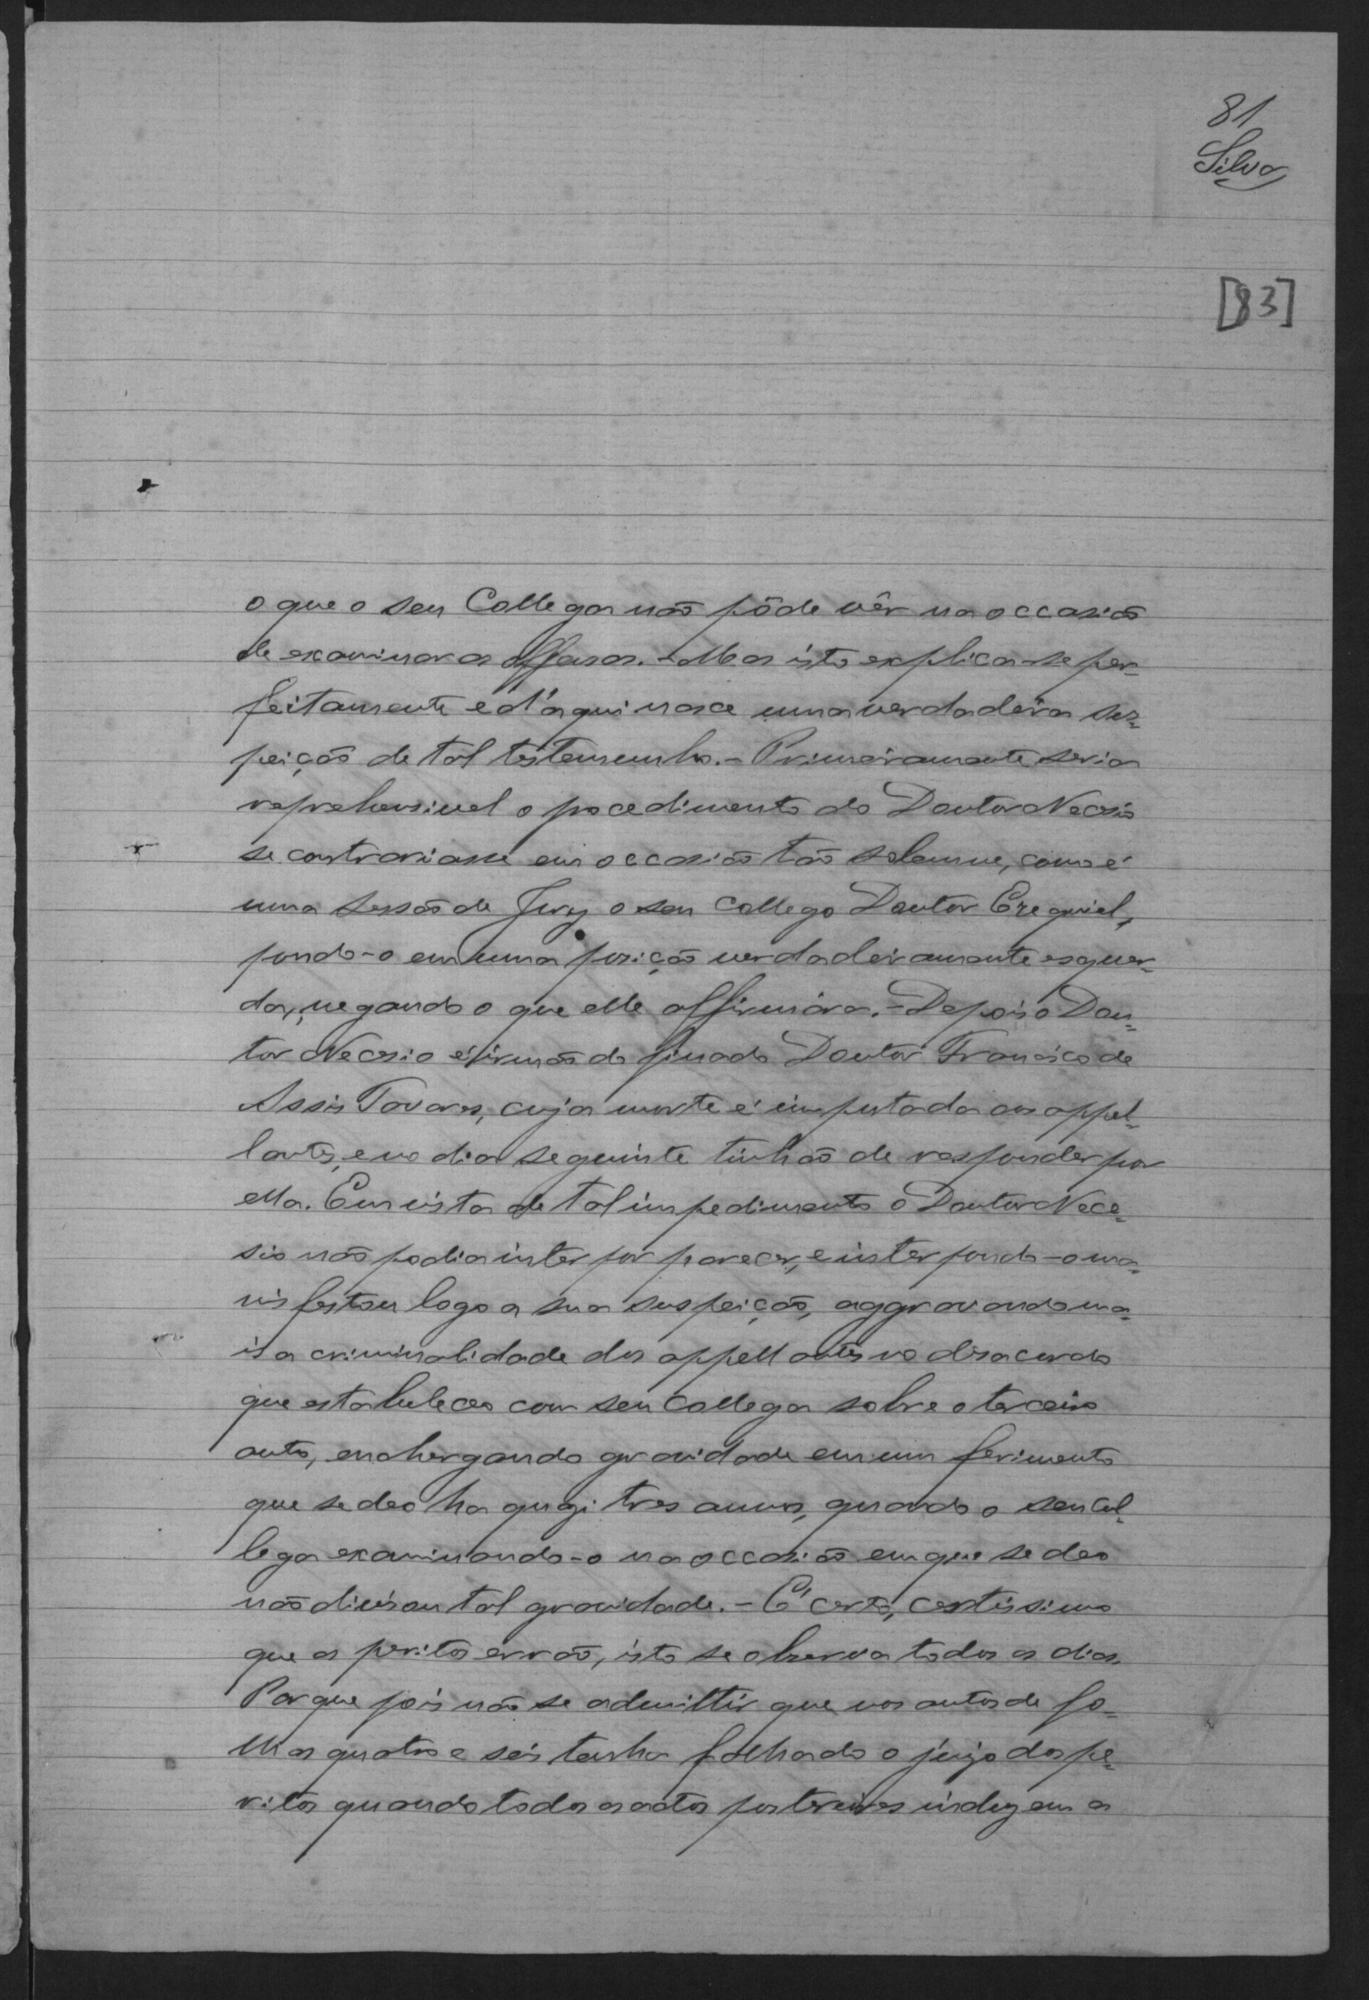 81
Silva
[83]
o que o seu Collega não pôde vêr na occasião
de examinar as offensas. - Mas isto explica-se per-
feitamente e d'aqui nasce uma verdadeira sus-
peição de tal testemunho. - Primeiramente seria
reprehensivel o procedimento do Doutor Necesio
se contrariasse em occasião tão solemne, como é
uma sessão de Jury o seu collega Doutor Ezequiel,
pondo-o em uma posição verdadeiramente esquer-
da, negando o que elle affirmára. - Depois o Dou-
tor Necesio é irmão do finado Doutor Francisco de
Assis Tavares, cuja morte é imputada aos appel-
lantes, e no dia seguinte tinhão de responder por
ella. Em vista de tal impedimento o Doutor Nece-
sio não podia interpor parecer, e interpondo-o ma-
nifestou logo a sua suspeição, aggravando ma-
is a criminalidade dos appellantes no desacordo
que estabeleceo com seu collega sobre o terceiro
auto, enchergando gravidade em um ferimento
que se deo ha quazi tres annos, quando o seu col-
lega examinando-o na occasião em que se deo
não divisou tal gravidade. - É certo, certissimo
que os peritos érrão, isto se observa todos os dias.
Porque pois não se admittir que nos autos de fo-
lhas quatro e seis tenha falhado o juizo dos pe-
ritos quando todos os actos posteriores indizem a